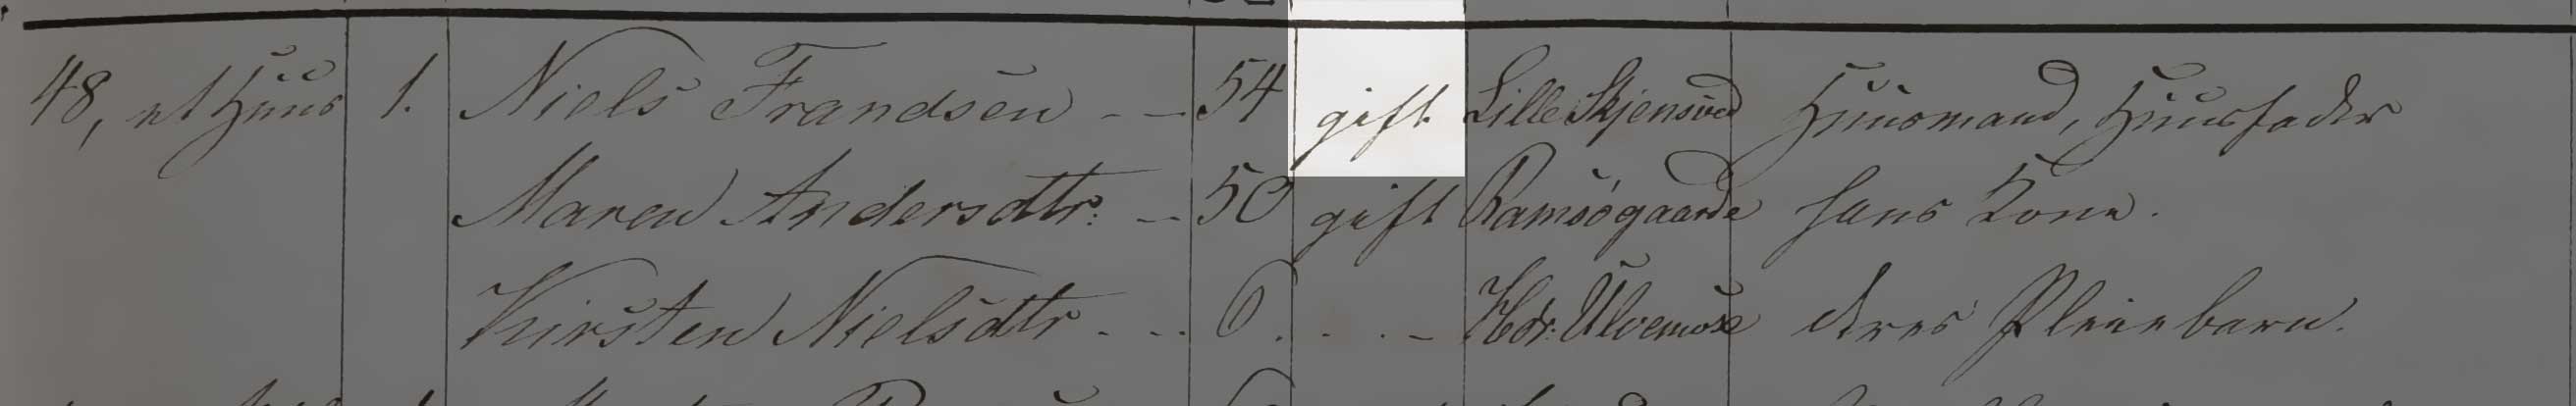 48, et Huus 1. Niels Frandsen -- 54 gift Lille Skjensved Huusmand, Huusfader
Maren Andersdtr: -- 50 gift Ramsögaarde hans Kone.
Kirsten Nielsdtr - - . 6 . . . - Hdr. Ulvemose deres Pleiebarn.